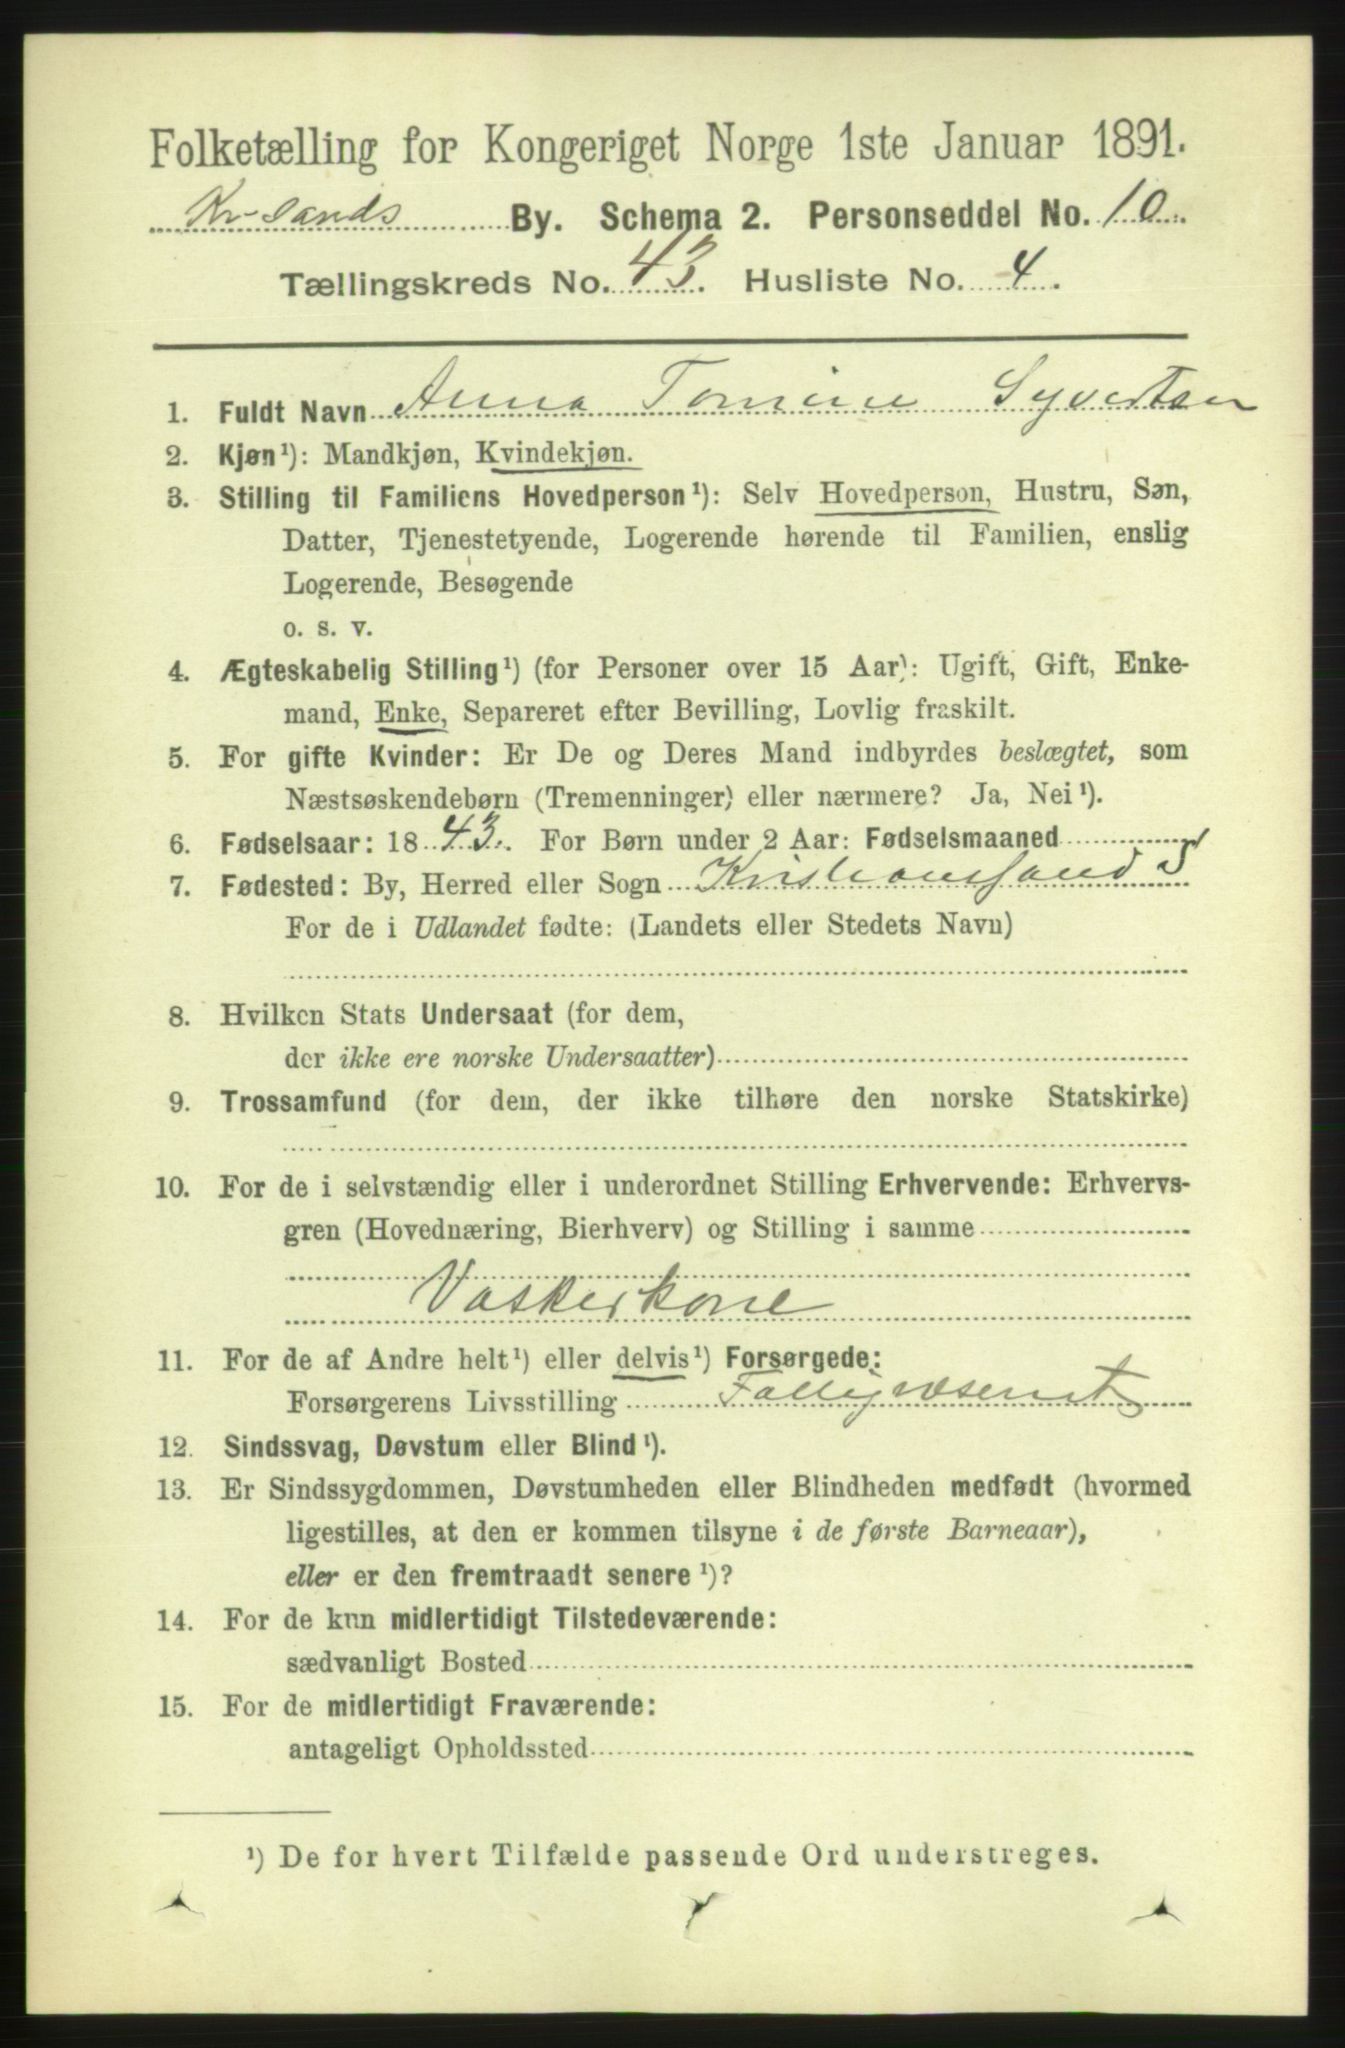 Folketælling for Kongeriget Norge 1ste Januar 1891.
Kr-sands By. Schema 2. Personseddel No. 10
Tællingskreds No. 43. Husliste No. 4.
1. Fuldt Navn Anna Tomine Syvertsen
2. Kjøn¹): Mandkjøn, Kvindekjøn.
3. Stilling til Familiens Hovedperson¹): Selv Hovedperson, Hustru, Søn,
Datter, Tjenestetyende, Logerende hørende til Familien, enslig
Logerende, Besøgende
o. s. v.
4. Ægteskabelig Stilling¹) (for Personer over 15 Aar): Ugift, Gift, Enke-
mand, Enke, Separeret efter Bevilling, Lovlig fraskilt.
5. For gifte Kvinder: Er De og Deres Mand indbyrdes beslægtet, som
Næstsøskendebørn (Tremenninger) eller nærmere? Ja, Nei¹).
6. Fødselsaar: 1843. For Børn under 2 Aar: Fødselsmaaned
7. Fødested: By, Herred eller Sogn Kristianssand S
For de i Udlandet fødte: (Landets eller Stedets Navn)
8. Hvilken Stats Undersaat (for dem,
der ikke ere norske Undersaatter)
9. Trossamfund (for dem, der ikke tilhøre den norske Statskirke)
10. For de i selvstændig eller i underordnet Stilling Erhvervende: Erhvervs-
gren (Hovednæring, Bierhverv) og Stilling i samme
Vaskerkone
11. For de af Andre helt¹) eller delvis¹) Forsørgede:
Forsørgerens Livsstilling Fattigvæsenet
12. Sindssvag, Døvstum eller Blind¹).
13. Er Sindssygdommen, Døvstumheden eller Blindheden medfødt (hvormed
ligestilles, at den er kommen tilsyne i de første Barneaar),
eller er den fremtraadt senere¹)?
14. For de kun midlertidigt Tilstedeværende:
sædvanligt Bosted
15. For de midlertidigt Fraværende:
antageligt Opholdssted
¹) De for hvert Tilfælde passende Ord understreges.